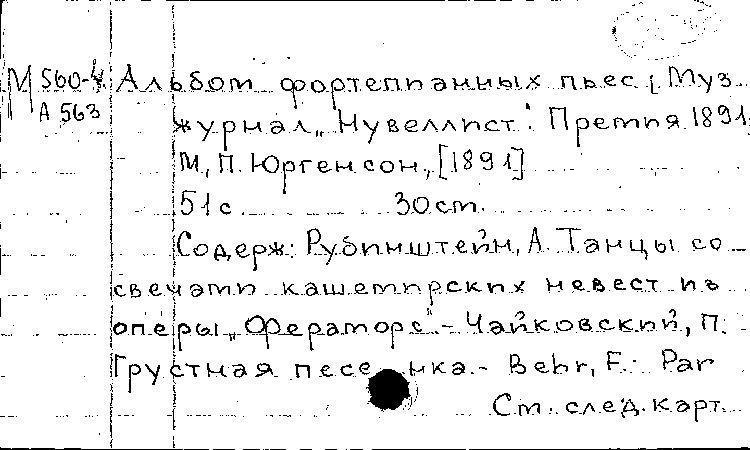 М 560-4 Альбом фортепианных пьес, Муз.
А 563 журнал „Нувеллист". Премия 1891.
М., П. Юргенсон, [1891]
51 с. 30 ст.
Содерж: Рубинштейн, А. Танцы со
свечати кашемирских невест из
оперы „Фераморс" - Чайковский, П.
Грустная песенка. - Behr, F. Par
Ст. след. карт.